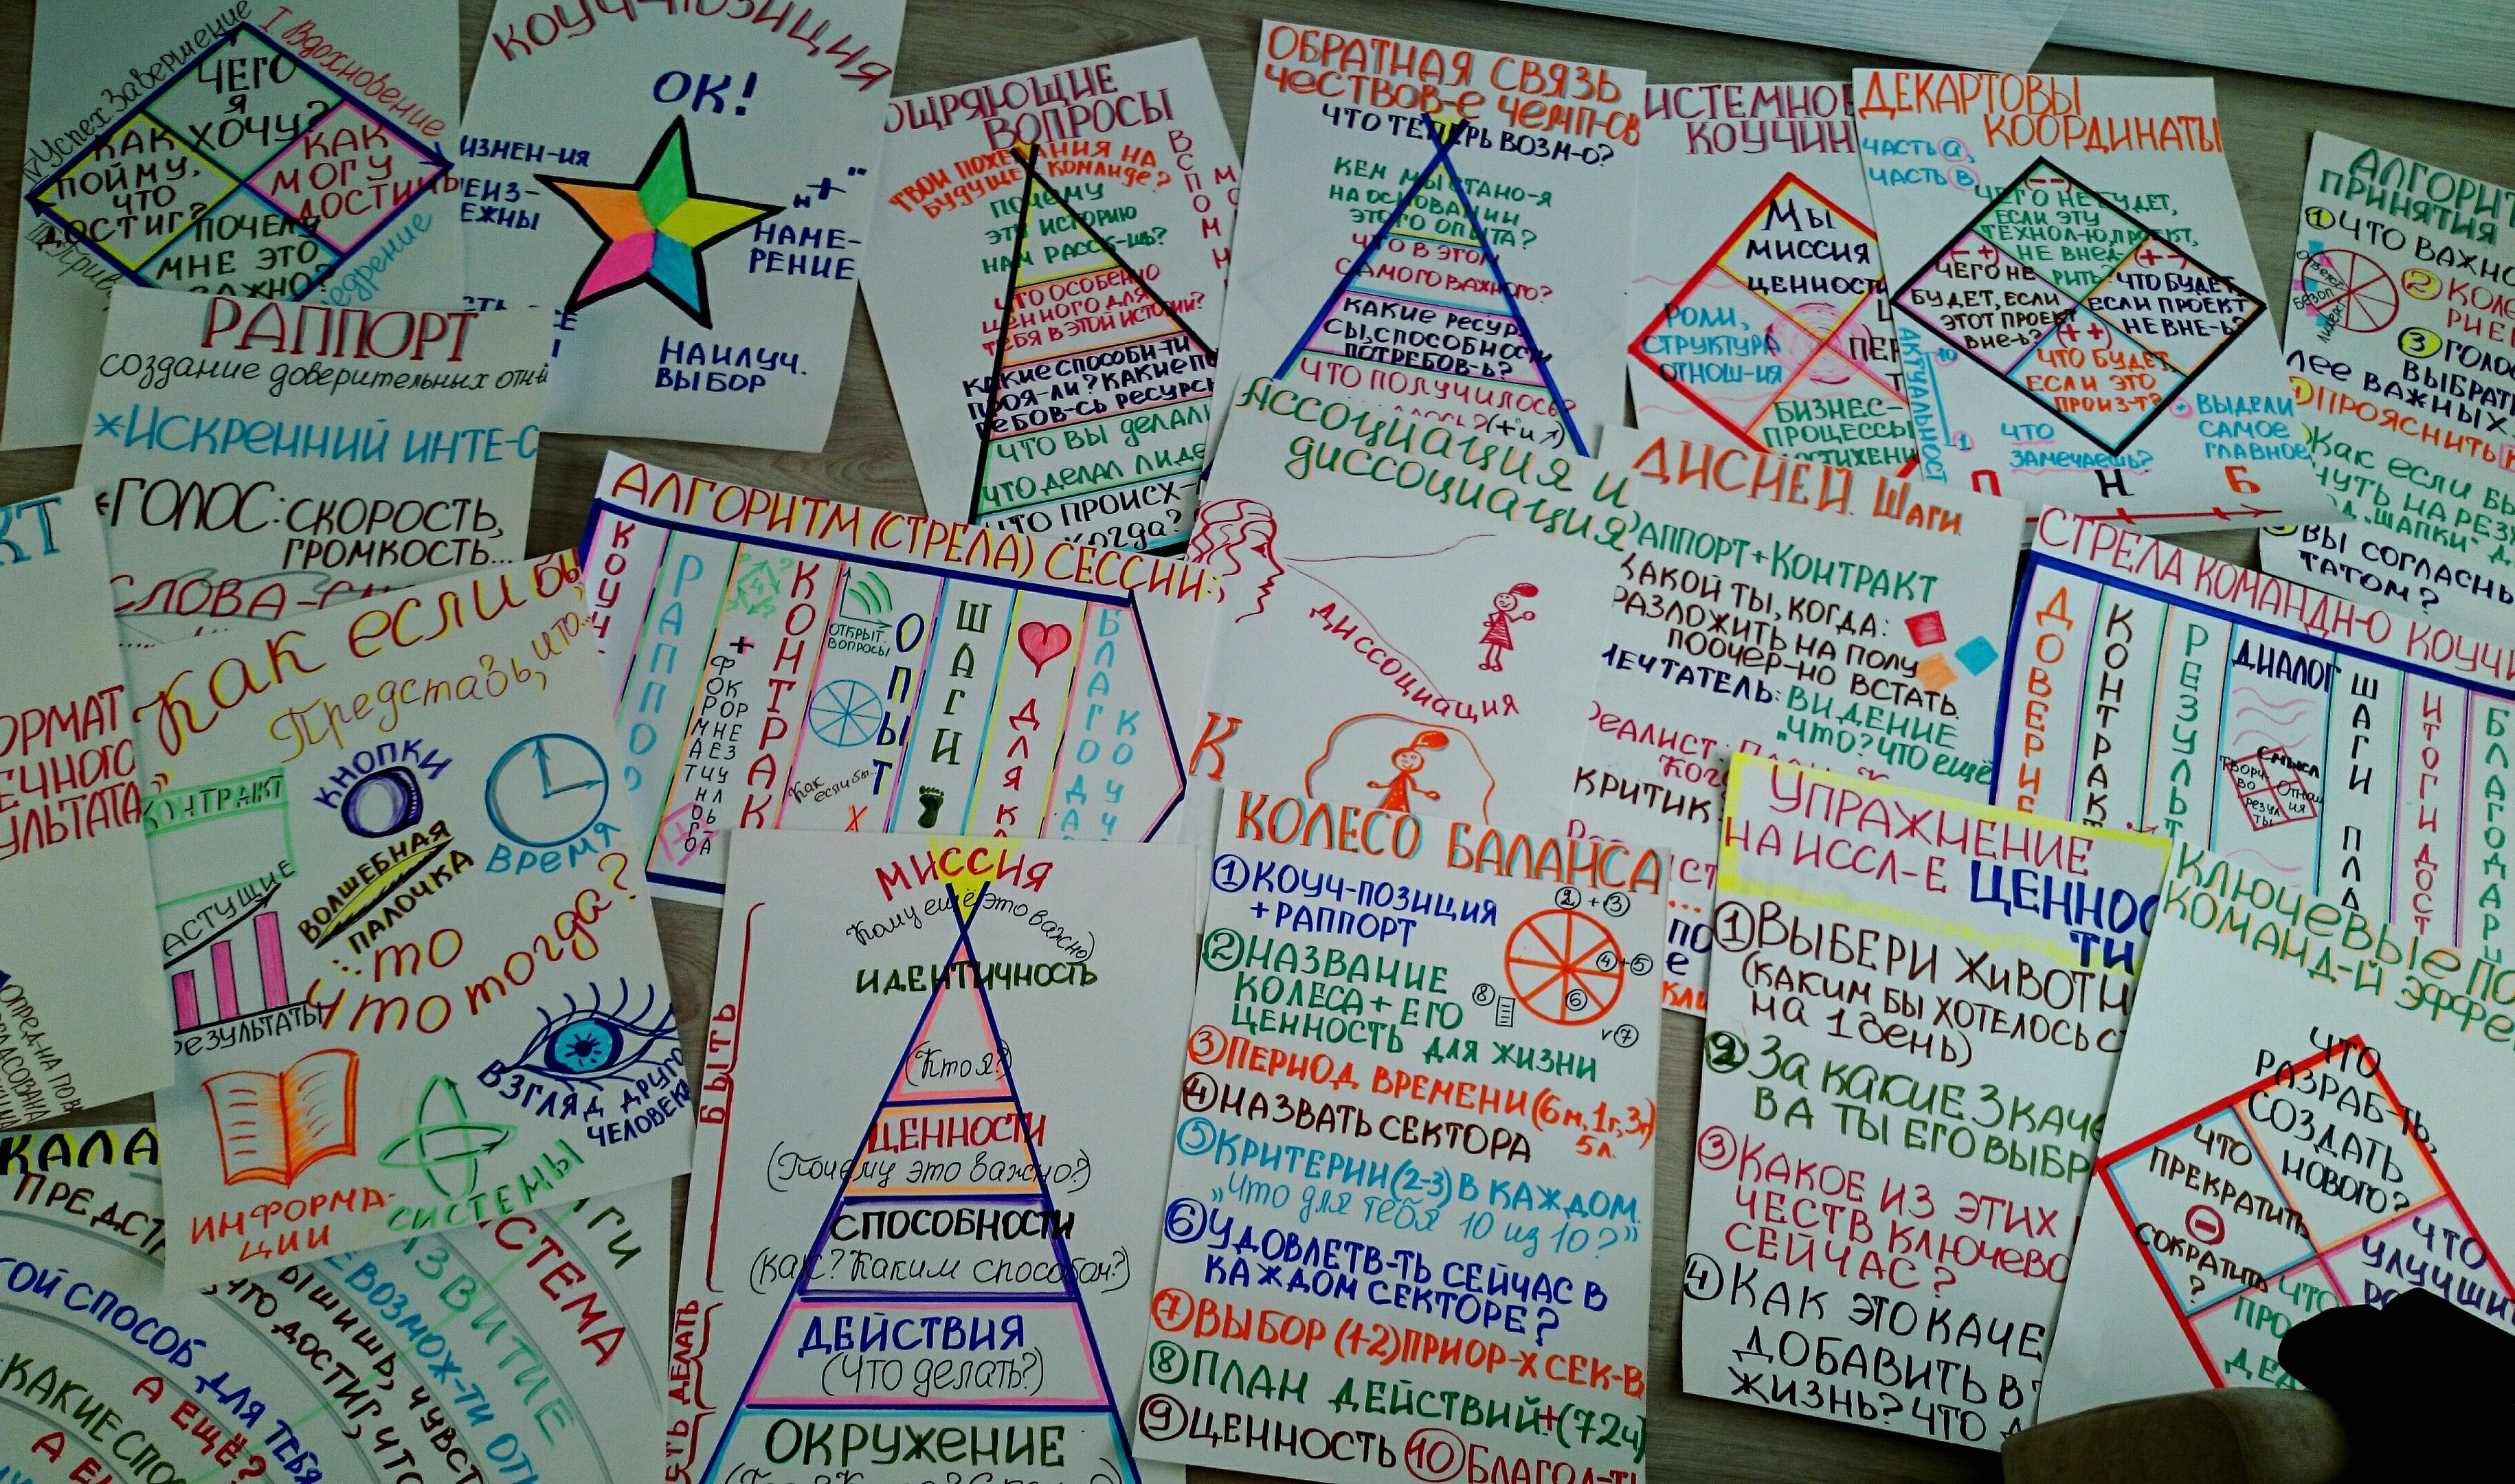 IV Успех Завершение
I Вдохновение
ЧЕГО
Я
ХОЧУ?
КАК
ПОЙМУ,
ЧТО
ДОСТИГ?
КАК
МОГУ
ДОСТИЧЬ
ПОЧЕМУ
МНЕ ЭТО
ВАЖНО?
КОУЧ-ПОЗИЦИЯ
ОК!
ИЗМЕН-ИЯ
НЕИЗ-
БЕЖНЫ
"+"
НАМЕ-
РЕНИЕ
НАИЛУЧ.
ВЫБОР
ВОПРОСЫ
ТВОИ ПОЖЕЛАНИЯ НА
БУДУЩЕЕ КОМАНДЕ?
ПОЧЕМУ
ЭТУ ИСТОРИЮ
НАМ РАССК-ШЬ?
ЧТО ОСОБЕННО
ЦЕННОГО ДЛЯ
ТЕБЯ В ЭТОЙ ИСТОРИИ?
КАКИЕ СПОСОБН-ТИ
ПРОЯ-ЛИ? КАКИЕ ПО
ТРЕБОВ-СЬ РЕСУРСЫ
ЧТО ВЫ ДЕЛАЛИ
ЧТО ДЕЛАЛ ЛИДЕ
ЧТО ПРОИСХ-
КОГДА?
ОБРАТНАЯ СВЯЗЬ
ЧЕСТВОВ-Е ЧЕМП-ОВ
ЧТО ТЕПЕРЬ ВОЗМ-О?
КЕМ МЫ СТАНО-Я
НА ОСНОВАНИИ
ЭТОГО ОПЫТА?
ЧТО В ЭТОМ
САМОГО ВАЖНОГО?
КАКИЕ РЕСУР-
СЫ, СПОСОБНОСТИ
ПОТРЕБОВ-Ь?
ЧТО ПОЛУЧИЛОСЬ?
ИСТЕМНОЕ
КОУЧИН
МЫ
МИССИЯ
ЦЕННОСТИ
РОЛИ,
СТРУКТУРА
ОТНОШ-ИЯ
БИЗНЕС-
ПРОЦЕССЫ
ДЕКАРТОВЫ
КООРДИНАТЫ
ЧАСТЬ а,
ЧАСТЬ в,
(- -)
ЧЕГО НЕ БУДЕТ,
ЕСЛИ ЭТУ
ТЕХНОЛ-Ю, ПРОЕКТ,
НЕ ВНЕД-
РИТЬ?
(- +)
ЧЕГО НЕ
БУДЕТ, ЕСЛИ
ЭТОТ ПРОЕКТ
ВНЕ-Ь?
(+ -)
ЧТО БУДЕТ,
ЕСЛИ ПРОЕКТ
НЕ ВНЕ-Ь?
(+ +)
ЧТО БУДЕТ,
ЕСЛИ ЭТО
ПРОИЗ-Т?
АКТУАЛЬНОСТ
10
1
ЧТО
ЗАМЕЧАЕШЬ?
ВЫДЕЛИ
САМОЕ
ГЛАВНОЕ
П Н Б
АЛГОРИТ
ПРИНЯТИЯ
① ЧТО ВАЖНО
② КОЛЕ
РИЕ
③ ГОЛОС
ВЫБРАТ
ЛЕЕ ВАЖНЫХ
ПРОЯСНИТЬ
КАК ЕСЛИ БЫ
НУТЬ НА РЕЗ
„ШАПКИ"
ВЫ СОГЛАСНЫ
ТАТОМ?
РАППОРТ
создание доверительных отн-й
*ИСКРЕННИЙ ИНТЕ-С
*ГОЛОС: СКОРОСТЬ,
ГРОМКОСТЬ...
СЛОВА-
АЛГОРИТМ (СТРЕЛА) СЕССИИ:
КОУЧ
РАППО
+
ФОРМАТ
КОНЕЧНОГО
РЕЗУЛЬ
КОНТРАК
ОТКРЫТ.
ВОПРОСЫ
Как
если бы
ОПЫТ
ШАГИ
ДЛЯ К
БЛАГОДА
КОУЧ
АССОЦИАЦИЯ И
ДИССОЦИАЦИЯ
ДИССОЦИАЦИЯ
К
ДИСНЕЙ. Шаги.
РАППОРТ+КОНТРАКТ
КАКОЙ ТЫ, КОГДА:
РАЗЛОЖИТЬ НА ПОЛУ
ПООЧЕР-НО ВСТАТЬ.
МЕЧТАТЕЛЬ: ВИДЕНИЕ
„ЧТО? ЧТО ЕЩЁ
РЕАЛИСТ:
КРИТИК
СТРЕЛА КОМАНДН-О КОУЧИ
ДОВЕРИЕ
КОНТРАК
РЕЗУЛЬТ
ДИАЛОГ
СМЫСЛ
ТВОРЧ-
ВО
ОТНОШ
ИЯ
РЕЗУЛ
ТЫ
ШАГИ ПЛА
ИТОГИ ДОСТ
БЛАГОДАР
КТ
ОРМАТ
ЕЧНОГО
УЛЬТАТА
Как если бы
Представь, что...
КОНТРАКТ
КНОПКИ
ВРЕМЯ
ВОЛШЕБНАЯ
ПАЛОЧКА
РАСТУЩИЕ
РЕЗУЛЬТАТЫ
...то
что тогда?
ВЗГЛЯД ДРУГО
ЧЕЛОВЕКА
ИНФОРМА-
ЦИИ
СИСТЕМЫ
КАЛА
ПРЕДСТ
ГОЙ СПОСОБ ДЛЯ ТЕБЯ
А ЕЩЁ?
КАКИЕ СПОС
ЧТО ДОСТИГ, ЧТО
ЫШИШЬ, ЧУВСТ
ВОЗМОЖ-ТИ ОТК
АЗВИТИЕ
СИСТЕМА
МИССИЯ
(Кому ещё это важно)
ИДЕНТИЧНОСТЬ
(Кто я?)
ЦЕННОСТИ
(Почему это важно?)
СПОСОБНОСТИ
(как? Каким способом?)
ДЕЙСТВИЯ
(Что делать?)
ОКРУЖЕНИЕ
БЫТЬ
ДЕЛАТЬ
КОЛЕСО БАЛАНСА
① КОУЧ-ПОЗИЦИЯ
+РАППОРТ
② НАЗВАНИЕ
КОЛЕСА + ЕГО
ЦЕННОСТЬ ДЛЯ ЖИЗНИ
②+③
④+⑤
⑥
⑧
v⑦
③ ПЕРИОД ВРЕМЕНИ (6м, 1г, 3г)
5л.
④ НАЗВАТЬ СЕКТОРА
⑤ КРИТЕРИИ (2-3) В КАЖДОМ.
„Что для тебя 10 из 10?"
⑥ УДОВЛЕТВ-ТЬ СЕЙЧАС В
КАЖДОМ СЕКТОРЕ?
⑦ ВЫБОР (1-2) ПРИОР-Х СЕК-В
⑧ ПЛАН ДЕЙСТВИЙ+(72ч)
⑨ ЦЕННОСТЬ ⑩ БЛАГОД-ТЬ
УПРАЖНЕНИЕ
НА ИССЛ-Е ЦЕННОС
ТИ
① ВЫБЕРИ ЖИВОТН
(КАКИМ БЫ ХОТЕЛОСЬ С
на 1 день)
② ЗА КАКИЕ 3 КАЧЕ
ВА ТЫ ЕГО ВЫБР
③ КАКОЕ ИЗ ЭТИХ
ЧЕСТВ КЛЮЧЕВО
СЕЙЧАС?
④ КАК ЭТО КАЧЕ
ДОБАВИТЬ В
ЖИЗНЬ? ЧТО
КЛЮЧЕВЫЕ ПО
КОМАНД-Й ЭФФЕ
ЧТО
РАЗРАБ-ТЬ,
СОЗДАТЬ
НОВОГО?
ЧТО
ПРЕКРАТИТЬ
⊖
СОКРАТИТЬ
?
ЧТО
УЛУЧШИ
ЧТО
ПРО
ДЕЛ